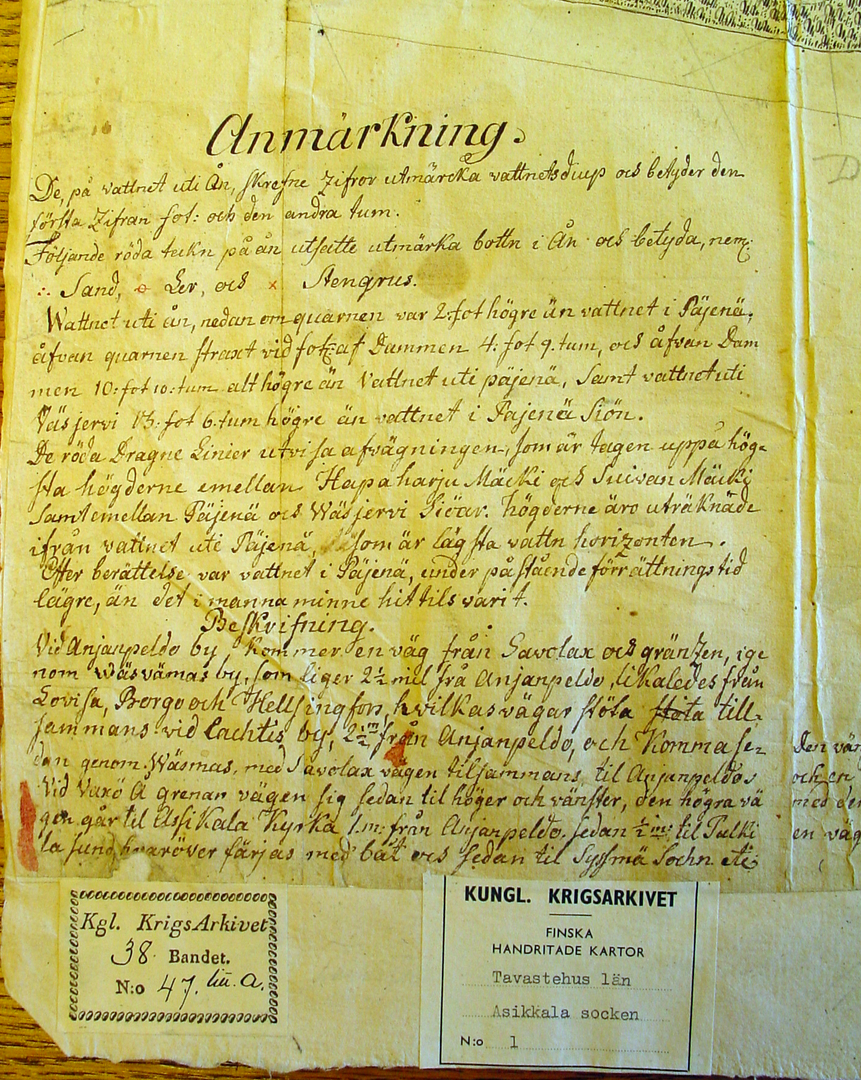 Anmärkning.
De, på vattnet uti Ån, skrefne Zifror utmärcka vattnets diup och betyder den
första Zifran fot: och den andra tum.
Följande röda tekn på ån utsatte utmärka bottn i Ån och betyda, nem:
∴ Sand, o Ler, och × Stengrus.
Wattnet uti ån, nedan om quarnen var 2 fot högre än vattnet i Päjenä,
åfvan quarnen straxt vid foten af Dammen 4: fot 9. tum, och åfvan Dam
men 10: fot 10: tum alt högre än Vattnet uti päjenä, Samt vattnet uti
Väsjervi 13: fot 6. tum högre än vattnet i Päjenä Siön.
De röda Dragne Linier utvisa afvägningen, som är tagen uppå hög-
sta högderne emellan Hapaharju Mäcki och Suivan Mäcki
samt emellan Päjenä och Wäsjervi Siöar. högderne äro uträknade
ifrån vattnet uti Päjenä, som är lägsta vattn horizonten.
Efter berättelse var vattnet i Päjenä, under påstående förrättnings tid
lägre, än det i manna minne hittils varit.
Beskrifning.
Vid Anjanpeldo by kommer en väg från Savolax och gräntzen, ige
nom Wäsvämas by, som liger 2½ mil frå Anjanpeldo, likaledes från
Lovisa, Borgo och Hellsingfors, hvilkas vägar stöta stöta till-
sammans vid Lachtis by, 2½ m: från Anjanpeldo, och Komma se-
dan genom Wäsmas, med Savolax vägen tilsammans til Anjanpeldo.
Vid Varö Å grenar vägen sig sedan til höger och vänster, den högra vä
gen går til Assikala Kyrka 1. m: från Anjanpeldo. sedan ½ m: til Pulki
la sund, hvaröver färjas med båt och sedan til Syssmä Sochn
den vän
och en
med den
en väg
Kgl. KrigsArkivet
38 Bandet.
N:o 47. litt. a.
KUNGL. KRIGSARKIVET
FINSKA
HANDRITADE KARTOR
Tavastehus län
Asikkala socken
N:o 1